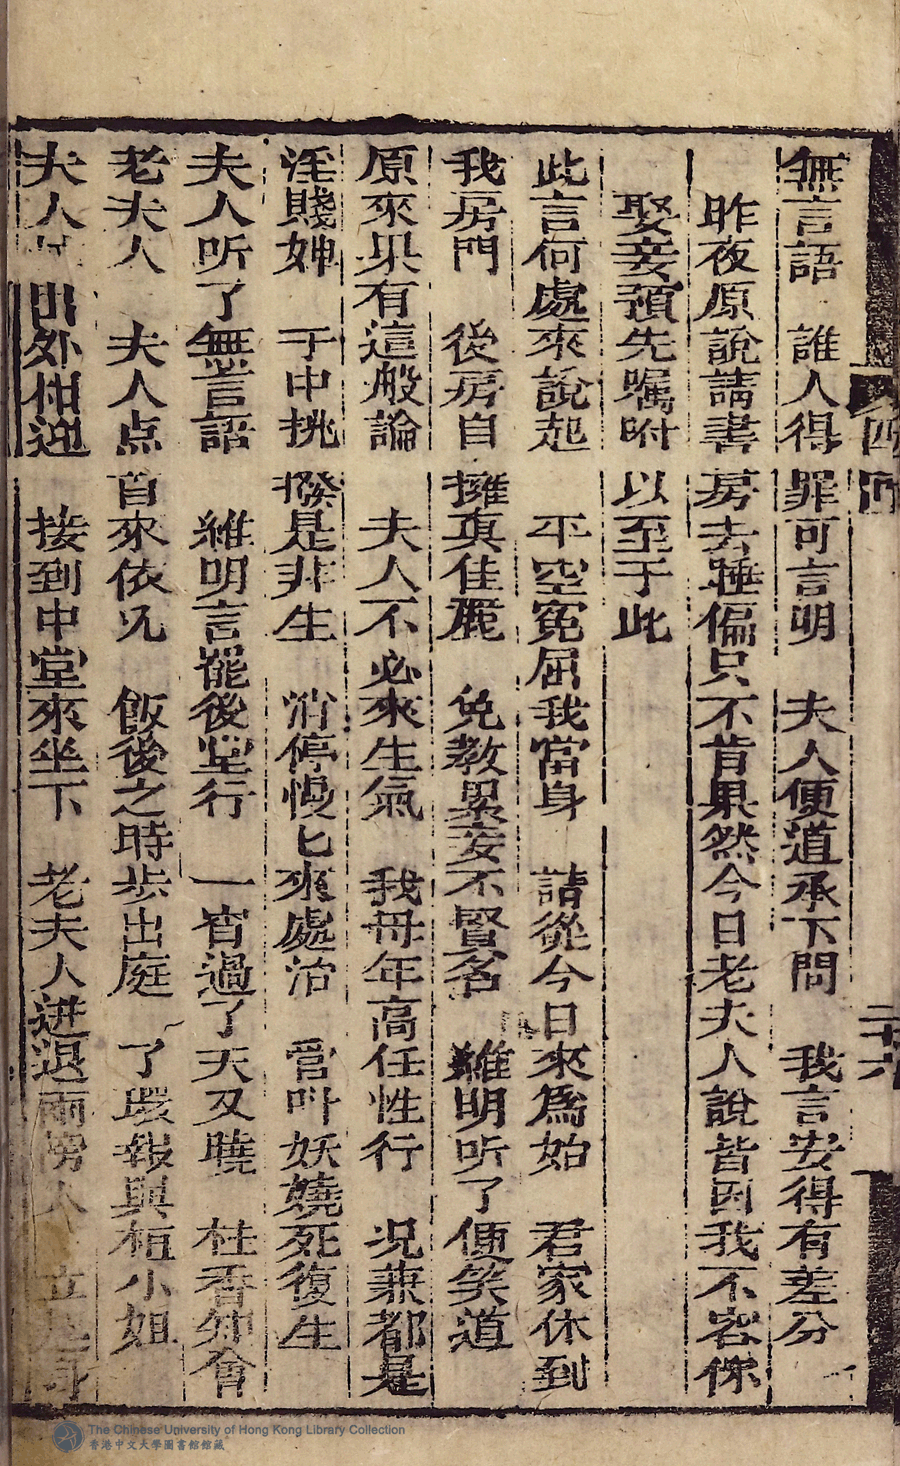 無言語 誰人得罪可言明 夫人便道承下問 我言安得有差分
昨夜原說請書房去睡偏只不肯果然今日老夫人說皆因我不容你
娶妾預先囑咐以至于此
此言何處來說起 平空冤屈我當身 請從今日來為始 君家休到
我房門 後房自擁真佳麗 免教累妾不賢名 維明听了便笑道
原來果有這般論 夫人不必來生氣 我母年高任性行 况兼都是
淫賤婢 于中挑撥是非生 消停慢匕來處治 管叫妖嬈死復生
夫人听了無言語 維明言罷後堂行 一宵過了天又曉 桂香卿會
老夫人 夫人点首來依允 飯後之時步出庭 了環報與桓小姐
夫人 出外相迎 接到中堂來坐下 老夫人進退兩傍人 立 身
四
二十六
The Chinese University of Hong Kong Library Collection
香港中文大學圖書館館藏